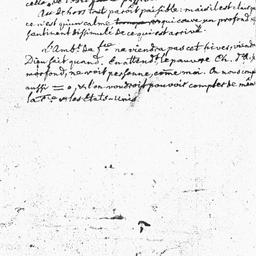 Au dehors tout paroit paisible: mais il est clair que
ce n'est qu'un calme qui couve un profond
sentiment dissimulé de ce qui est arrivé.
L'Amb.r de f.ce ne viendra pas cet hiver, viendra
Dieu sait quand. En attend.t le pauvre Ch. d'A.
morfond, ne voit personne, come moi. On nous
aussi = 0, et l'on voudroit pouvoir compter de même
la f.ce et les Etats-unis.